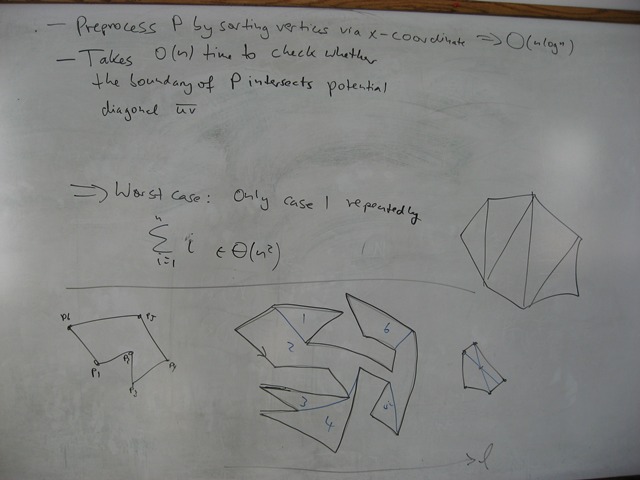 - Preprocess P by sorting vertices via x-coordinate ⇒ O(n log n)
- Takes O(n) time to check whether
the boundary of P intersects potential
diagonal uv
⇒ Worst case: Only case 1 repeatedly
n
∑ i ∈ Θ(n²)
i=1
P6 P5
P1 P2 P4
P3
1 6
2
3
4 5
l